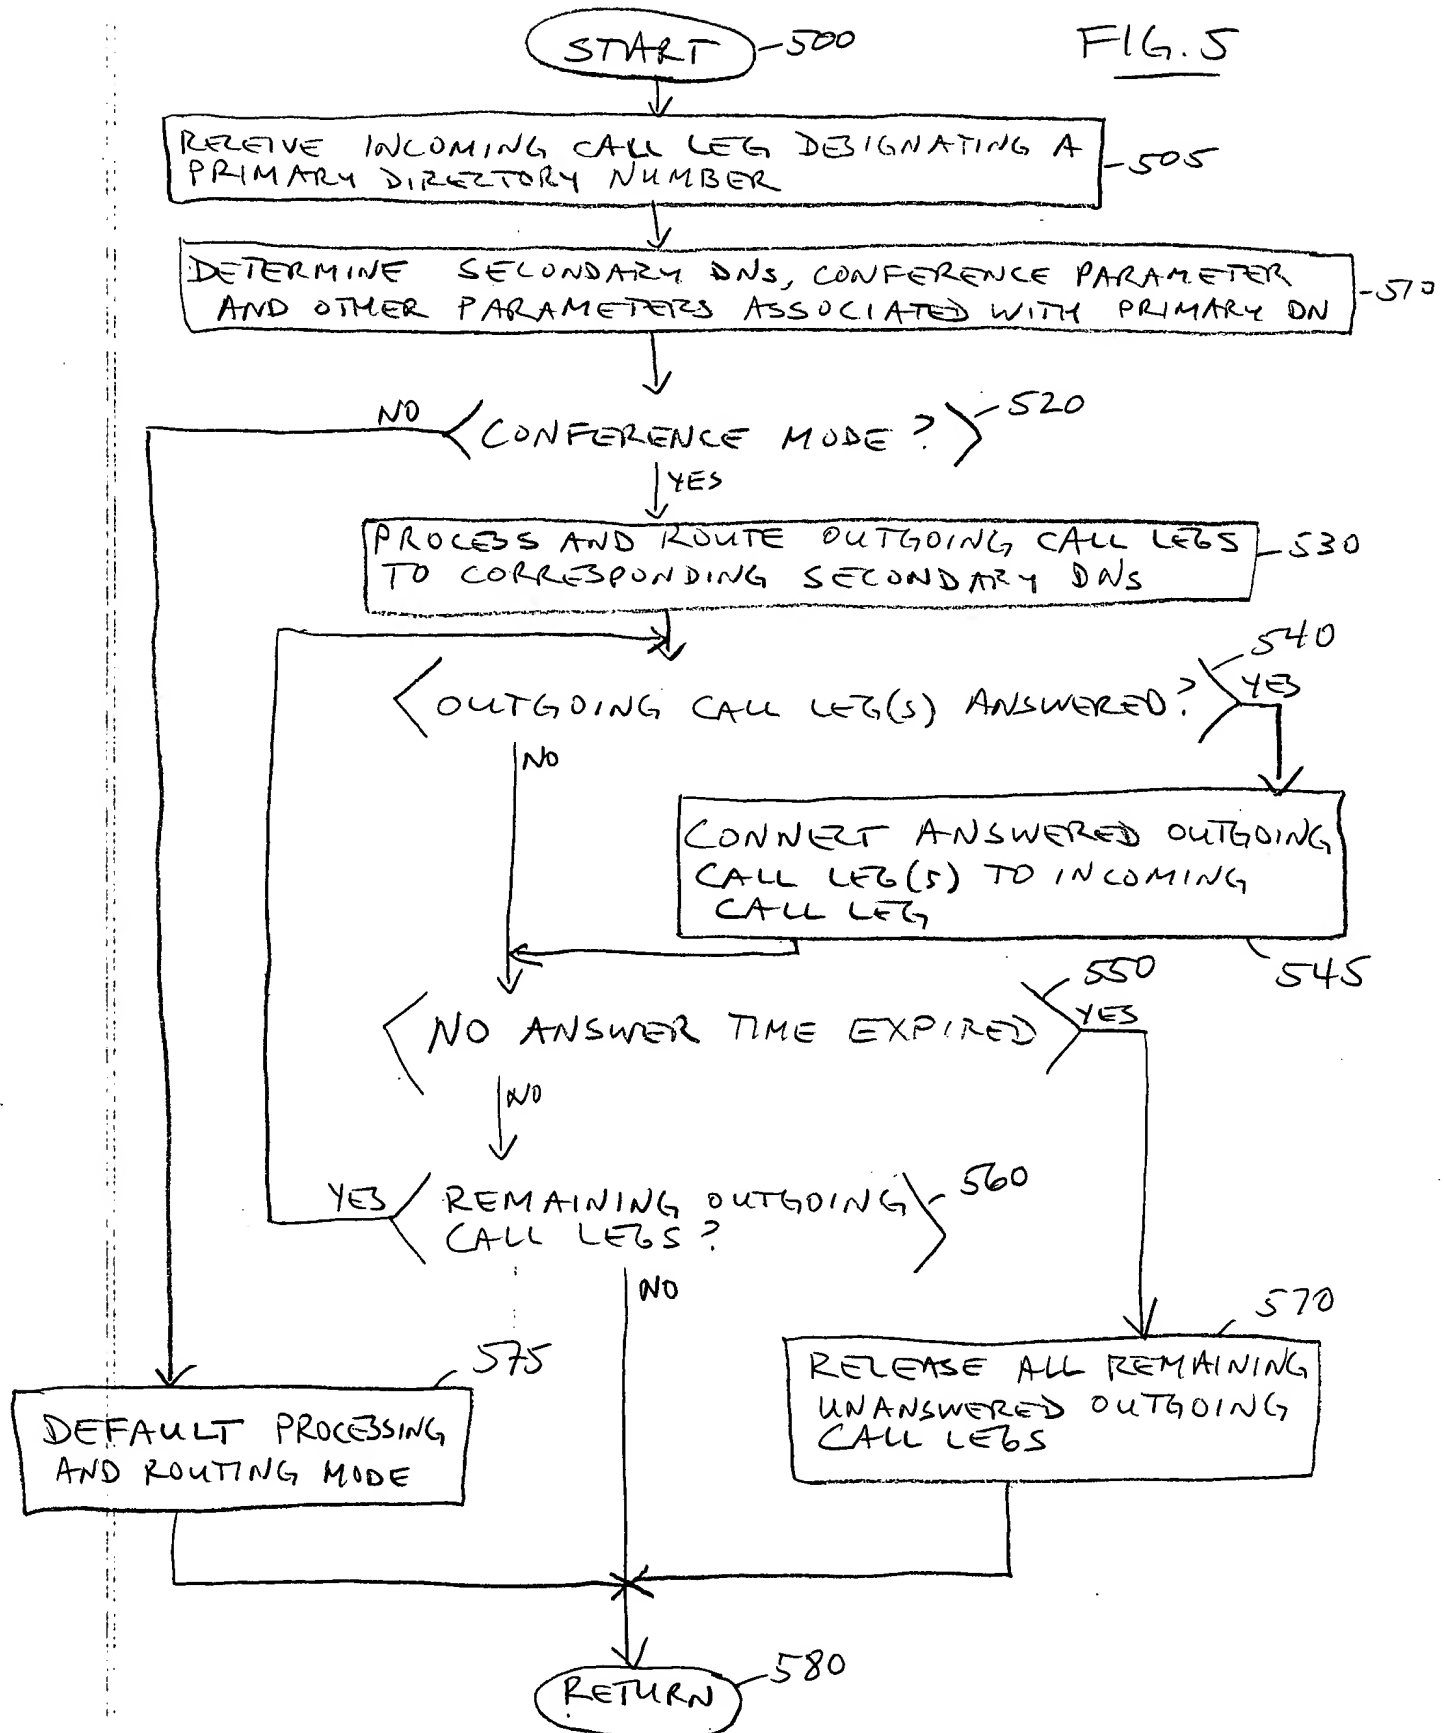 START
500
FIG. 5
RECEIVE INCOMING CALL LEG DESIGNATING A
PRIMARY DIRECTORY NUMBER
505
DETERMINE SECONDARY DNs, CONFERENCE PARAMETER
AND OTHER PARAMETERS ASSOCIATED WITH PRIMARY DN
510
NO
CONFERENCE MODE?
520
YES
PROCESS AND ROUTE OUTGOING CALL LEGS
TO CORRESPONDING SECONDARY DNs
530
540
OUTGOING CALL LEG(S) ANSWERED?
YES
NO
CONNECT ANSWERED OUTGOING
CALL LEG(S) TO INCOMING
CALL LEG
545
550
NO ANSWER TIME EXPIRED
YES
NO
YES
REMAINING OUTGOING
CALL LEGS?
560
NO
570
575
RELEASE ALL REMAINING
UNANSWERED OUTGOING
CALL LEGS
DEFAULT PROCESSING
AND ROUTING MODE
580
RETURN